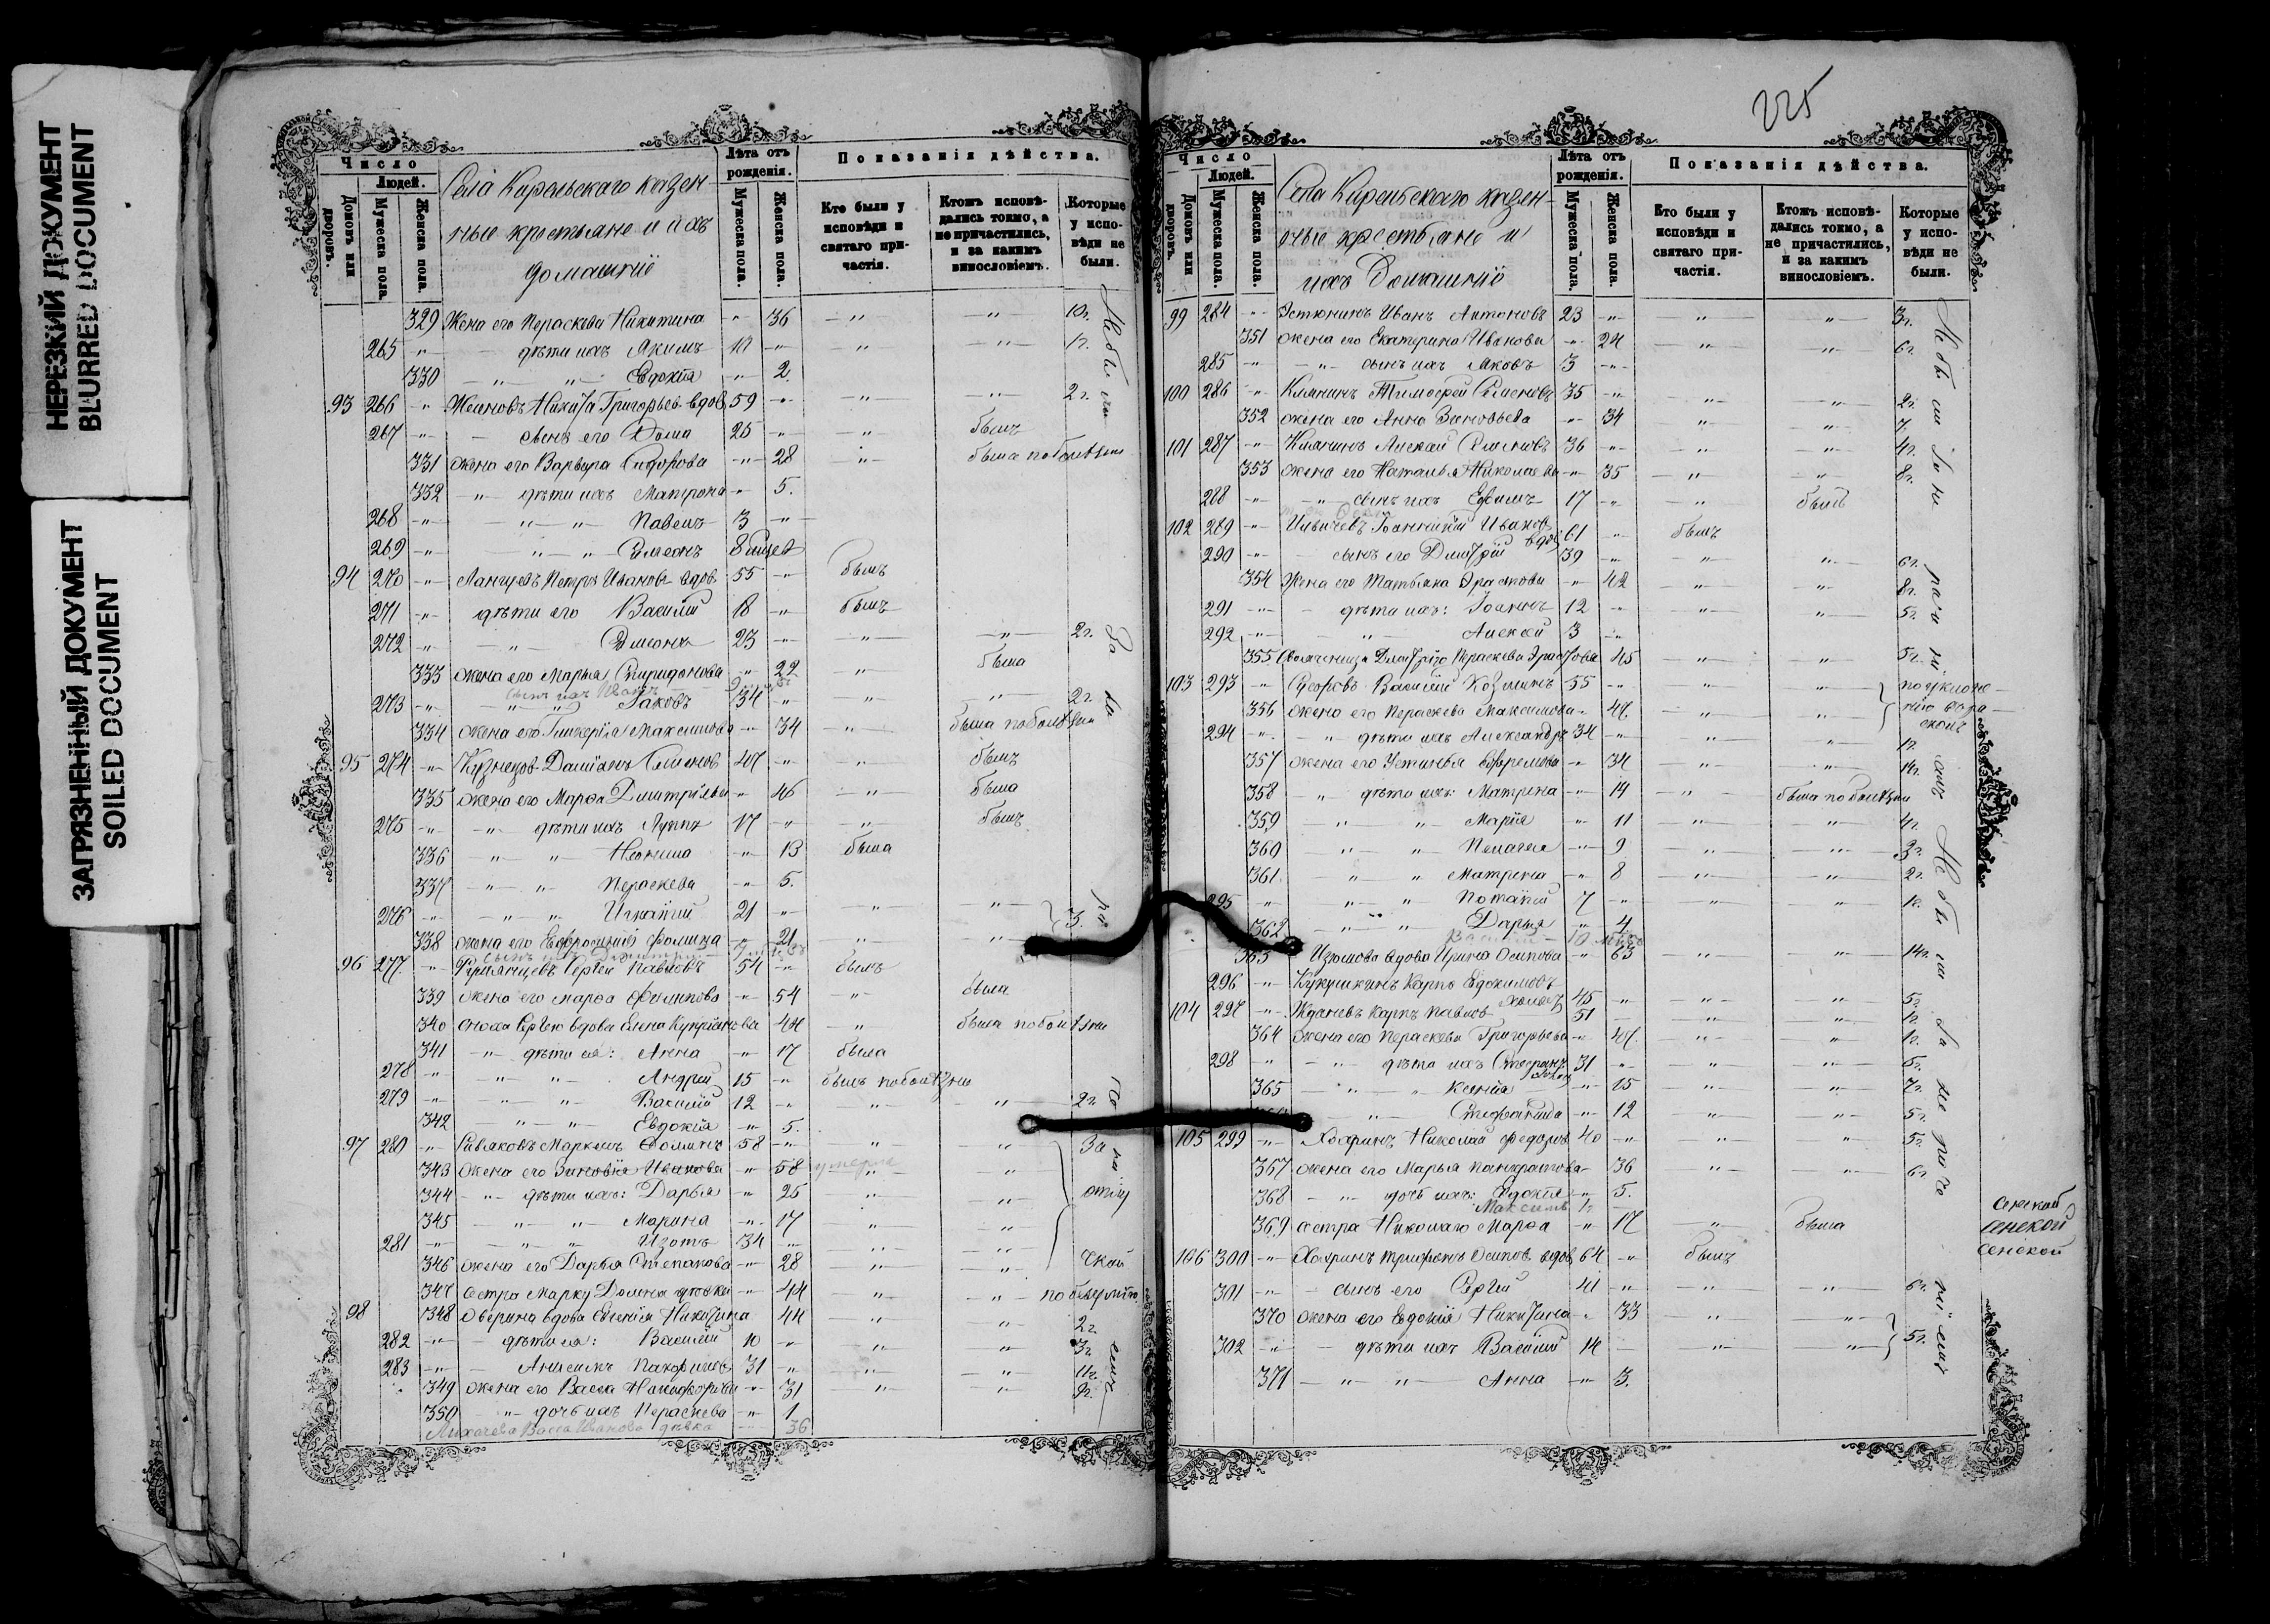 НЕРЕЗКИЙ ДОКУМЕНТ
BLURRED DOCUMENT
ЗАГРЯЗНЕННЫЙ ДОКУМЕНТ
SOILED DOCUMENT
Число
Людей.
Домовъ или дворовъ.
Мужеска пола.
Женска пола.
Села Кирельскаго казен-
ные крестьяне и ихъ
домашніи
Лѣта отъ рожденія.
Мужеска пола.
Женска пола.
Показанія дѣйства.
Кто были у исповѣди и святаго причастія.
Ктожъ исповѣдались токмо, а не причастились, и за какимъ винословіемъ.
Которые у исповѣди не были.
329 Жена его Пераскева Никитина -"- 36 -"- -"-
265 -"- дѣти ихъ Якимъ -"- -"- -"- 1г.
330 -"- -"- Евдокія -"- 2.
93 266 -"- Никита Григорьев вдов 59 -"- -"- -"- 2г.
267 -"- сынъ его Фома 25 -"- -"- былъ
331 жена его Варвара Сидорова -"- 28 -"- была по болѣзни
332 -"- дѣти ихъ Матрона -"- 5.
268 -"- -"- -"- Павелъ 3 -"-
269 -"- -"- -"- Симеонъ 8 мцев
94 270 -"- Петръ Иванов вдов 55 -"- былъ
271 -"- дѣти его Василій 18 -"- былъ
272 -"- -"- Симеонъ 23 -"- -"- -"- 2г.
333 жена его Марья Спиридонова -"- 22 -"- была
сынъ ихъ Иванъ
273 -"- -"- -"- Іаковъ 34 -"- -"- -"- 2г.
334 жена его Гликерія Максимова -"- 34 -"- была по болѣзни
95 274 -"- Кузнецов Даміанъ Семенов 47 -"- -"- былъ
335 жена его Марѳа Дмитріева -"- 46 -"- была
275 -"- -"- дѣти ихъ Луппъ 17 -"- -"- былъ
336 -"- -"- Неонила -"- 13 была
337 -"- -"- Пераскева -"- 5.
276 -"- -"- -"- Игнатій 21 -"- -"- -"- 3.
338 жена его Евфросинія Фомина -"- 21 -"- -"-
96 277 -"- Румянцевъ Сергей Павловъ 54 -"- былъ
339 жена его Марѳа Филипова -"- 54 -"- была
340 сноха Сергѣю вдова Елена Купріянова 44 -"- была по болѣзни
341 -"- дѣти ея: Анна -"- 17 была
278 -"- -"- -"- Андрей 15 -"- былъ по болѣзни
279 -"- -"- -"- Василій 12 -"- -"- -"- 2г.
342 -"- -"- Евдокія -"- 5.
97 280 -"- Маркелъ Фоминъ 58 -"- -"- -"- За
343 жена его Зиновія Иванова -"- 58 умерла -"-
344 -"- дѣти ихъ: Дарья -"- 25 -"- -"-
345 -"- -"- Марина -"- 17 -"- -"-
281 -"- -"- -"- Изотъ 34 -"- -"- -"-
346 жена его Дарья Степанова -"- 28 -"- -"-
347 сестра Марку Домна дѣвка -"- 44 -"- -"-
98 348 Аверина вдова Евгенія Никитина 44 -"- -"- 2г.
282 -"- дѣти ея: Василій 10 -"- -"- -"- 3г.
283 -"- 31 -"- -"- -"- 11г.
349 жена его Васса Никифорова -"- 31 -"- -"- 9г.
350 -"- дочь ихъ Пераскева -"- 1
Лихачева Васса Иванова дѣвка 36
225
Число
Людей.
Домовъ или дворовъ.
Мужеска пола.
Женска пола.
Села Кирельскаго казен-
ные крестьяне и
ихъ Домашніи
Лѣта отъ рожденія.
Мужеска пола.
Женска пола.
Показанія дѣйства.
Кто были у исповѣди и святаго причастія.
Ктожъ исповѣдались токмо, а не причастились, и за какимъ винословіемъ.
Которые у исповѣди не были.
99 284 -"- Иванъ Антоновъ 23 -"- -"- -"- 3г.
351 жена его Екатерина Иванова -"- 24 -"- -"- 6г.
285 -"- -"- сынъ ихъ Яковъ 3 -"-
100 286 -"- Тимоѳей Семеновъ 35 -"- -"- -"- 2г.
352 жена его Анна Зиновьева -"- 34 -"- -"- 7
101 287 -"- Алексѣй Семеновъ 36 -"- -"- -"- 4г.
353 жена его Наталья Николаева -"- 35 -"- -"- 8г.
288 -"- -"- сынъ ихъ Ефимъ 17 -"- -"- былъ
102 289 -"- Іоанникій Иванов вдов 61 -"- былъ
290 -"- сынъ его Дмитрій 39 -"- -"- -"- 6г.
354 Жена его Татьяна Эрастова -"- 42 -"- -"- 8г.
291 -"- дѣти ихъ: Іоаннъ 12 -"- -"- -"- 5г.
292 -"- -"- Алексѣй 3 -"-
355 Свояченица Дмитрію Пераскева Эрастова 45 -"- -"- 5г.
103 293 -"- Василій Козминъ 55 -"- -"- -"- по уклоне-
356 жена его Пераскева Максимова -"- 47 -"- -"- нію въ ра-
294 -"- -"- дѣти ихъ Александръ 34 -"- -"- -"- сколъ
357 жена его Устинья Ефремова -"- 34 -"- -"- 14г.
358 -"- дѣти ихъ: Матрина -"- 14 -"- была по болѣзни
359 -"- -"- Марія -"- 11 -"- -"- 4г.
360 -"- -"- Пелагея -"- 9 -"- -"- 3г.
361 -"- -"- Матрина -"- 8 -"- -"- 2г.
295 -"- -"- -"- Потапій 7 -"- -"- -"- 1г.
362 -"- -"- Дарья -"- 4
Василій
363 Изюмова вдова Ирина Осипова -"- 63 -"- -"- 14г.
296 -"- Кукушкинъ Карпъ Евдокимовъ холостъ 45 -"- -"- -"- 5г.
104 297 -"- Ждановъ Карпъ Павловъ 51 -"- -"- 1г.
364 жена его Пераскева Григорьева -"- 47 -"- -"- 1г.
298 -"- -"- дѣти ихъ Стефанъ 31 -"- -"- -"- 6г.
365 -"- -"- Ксенія -"- 15 -"- -"- 7г.
-"- Стефанида -"- 12 -"- -"- 5г.
105 299 -"- Хохринъ Николай Федоров 40 -"- -"- -"- 5г.
367 жена его Марья Панкратова -"- 36 -"- -"- 6г.
368 -"- дочь ихъ: Евдокія -"- 5.
Максимъ
369 сестра Николаю Марѳа -"- 17 -"- была
106 300 -"- Хохринъ Трифонъ Осипов вдов 64 -"- былъ
301 -"- сынъ его Сергій 41 -"- -"- -"- 6г.
370 жена его Евдокія Никитина -"- 33 -"- -"-
302 -"- дѣти ихъ Василій 14 -"- -"- -"- 5г.
371 -"- -"- Анна -"- 3.